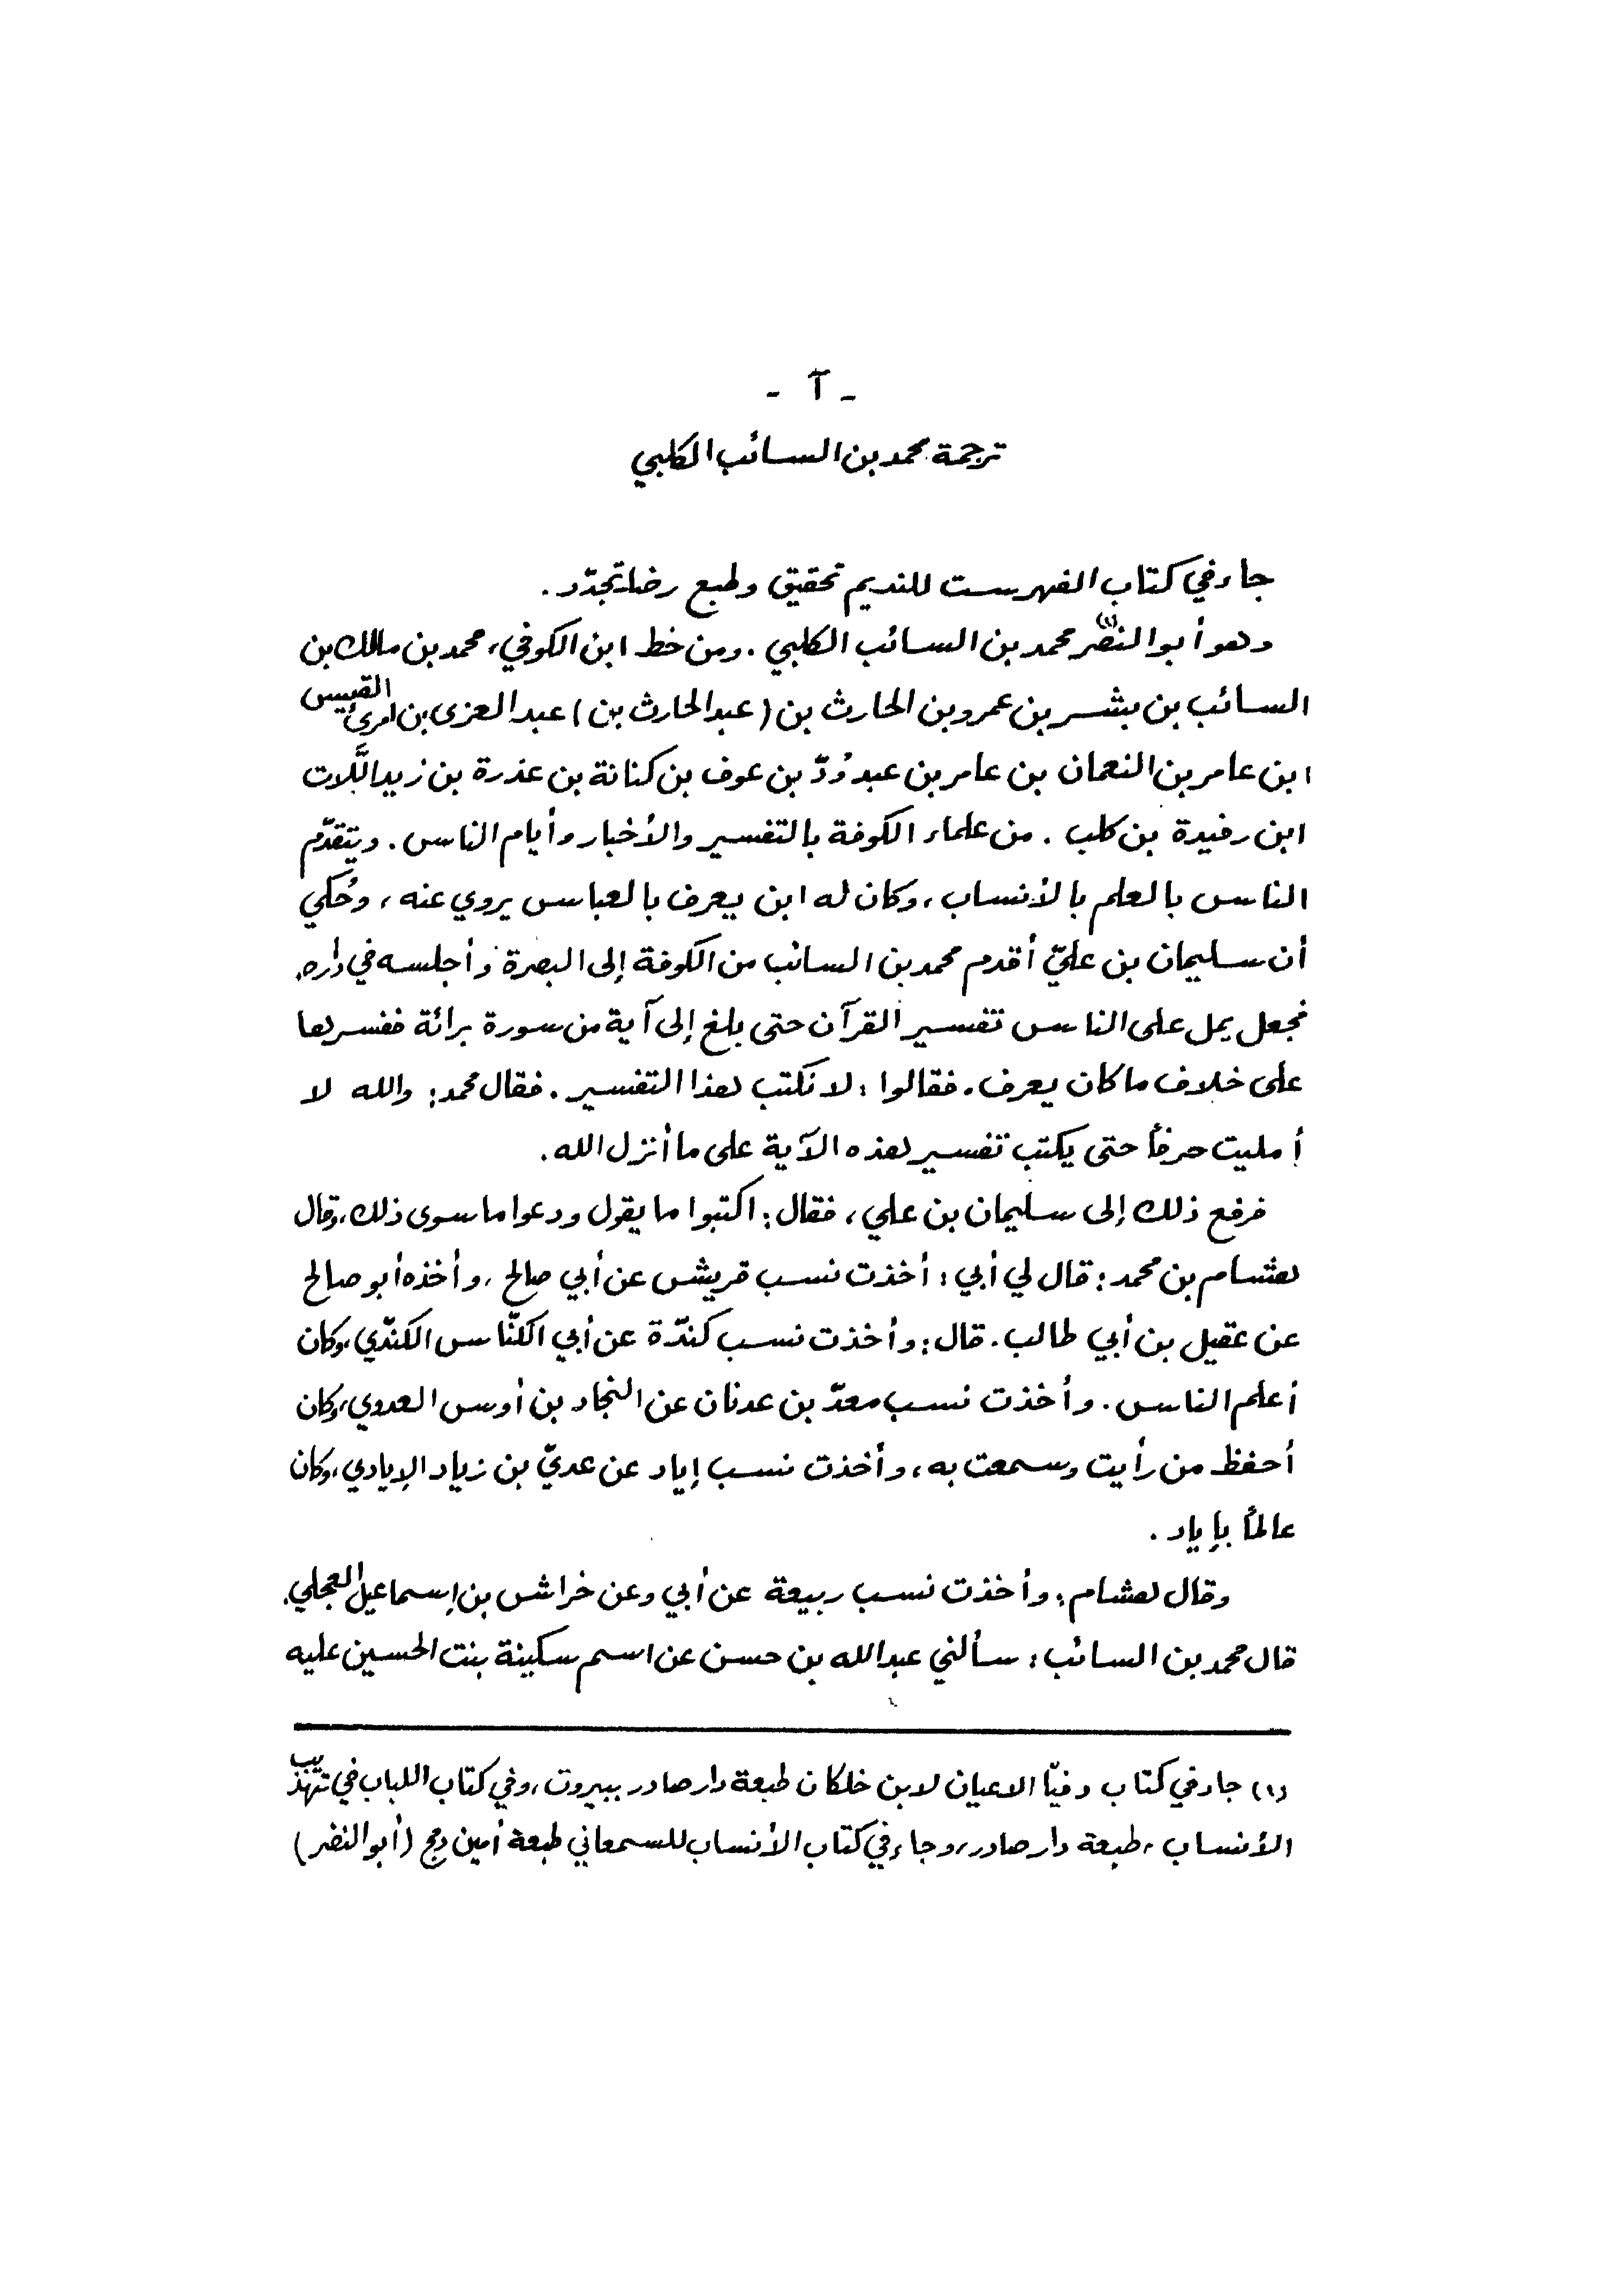 - آ -
ترجمة محمد بن السائب الكلبي
جاء في كتاب الفهرست للنديم تحقيق وطبع رضا تجدّد .
وهو أبو النصر(١) محمد بن السائب الكلبي . ومن خط ابن الكوفي، محمد بن مالك بن
السائب بن بشر بن عمرو بن الحارث بن (عبد الحارث بن) عبد العزى بن امرئ القيس
ابن عامر بن النعمان بن عامر بن عبد وُدّ بن عوف بن كنانة بن عذرة بن زيد اللَّات
ابن رفيدة بن كلب . من علماء الكوفة بالتفسير والأخبار وأيام الناس . ويتقدّم
الناس بالعلم بالأنساب ، وكان له ابن يعرف بالعباس يروي عنه ، وحُكي
أن سليمان بن عليّ أقدم محمد بن السائب من الكوفة إلى البصرة وأجلسه في داره.
فجعل يمل على الناس تفسير القرآن حتى بلغ إلى آية من سورة برائة ففسرها
على خلاف ما كان يعرف . فقالوا : لا نكتب هذا التفسير . فقال محمد : والله لا
أمليت حرفاً حتى يكتب تفسير هذه الآية على ما أنزل الله .
فرفع ذلك إلى سليمان بن علي ، فقال : اكتبوا ما يقول ودعوا ما سوى ذلك ، وقال
هشام بن محمد : قال لي أبي : أخذت نسب قريش عن أبي صالح ، وأخذه أبو صالح
عن عقيل بن أبي طالب . قال : وأخذت نسب كندّة عن أبي الكنّاس الكندّي ، وكان
أعلم الناس . وأخذت نسب معدّ بن عدنان عن النجاد بن أوس العدوي ، وكان
أحفظ من رأيت وسمعت به ، وأخذت نسب إياد عن عديّ بن زياد الإيادي ، وكان
عالماً بإياد .
وقال هشام : وأخذت نسب ربيعة عن أبي وعن خراش بن إسماعيل العجلي .
قال محمد بن السائب : سألني عبد الله بن حسن عن اسم سكينة بنت الحسين عليه
(١) جاء في كتاب وفيّا الاعيان لابن خلكان طبعة دار صادر ببيروت ، وفي كتاب اللباب في تهذيب
الأنساب ، طبعة دار صادر ، وجاء في كتاب الأنساب للسمعاني طبعة أمين دمج (أبو النضر)